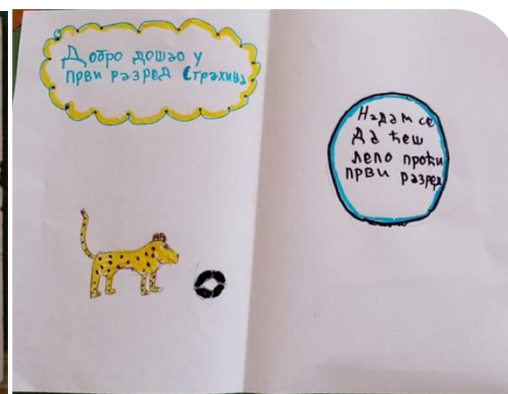 Добро дошао у
први разред Страхиња
Надам се
да ћеш
лепо проћи
први разред